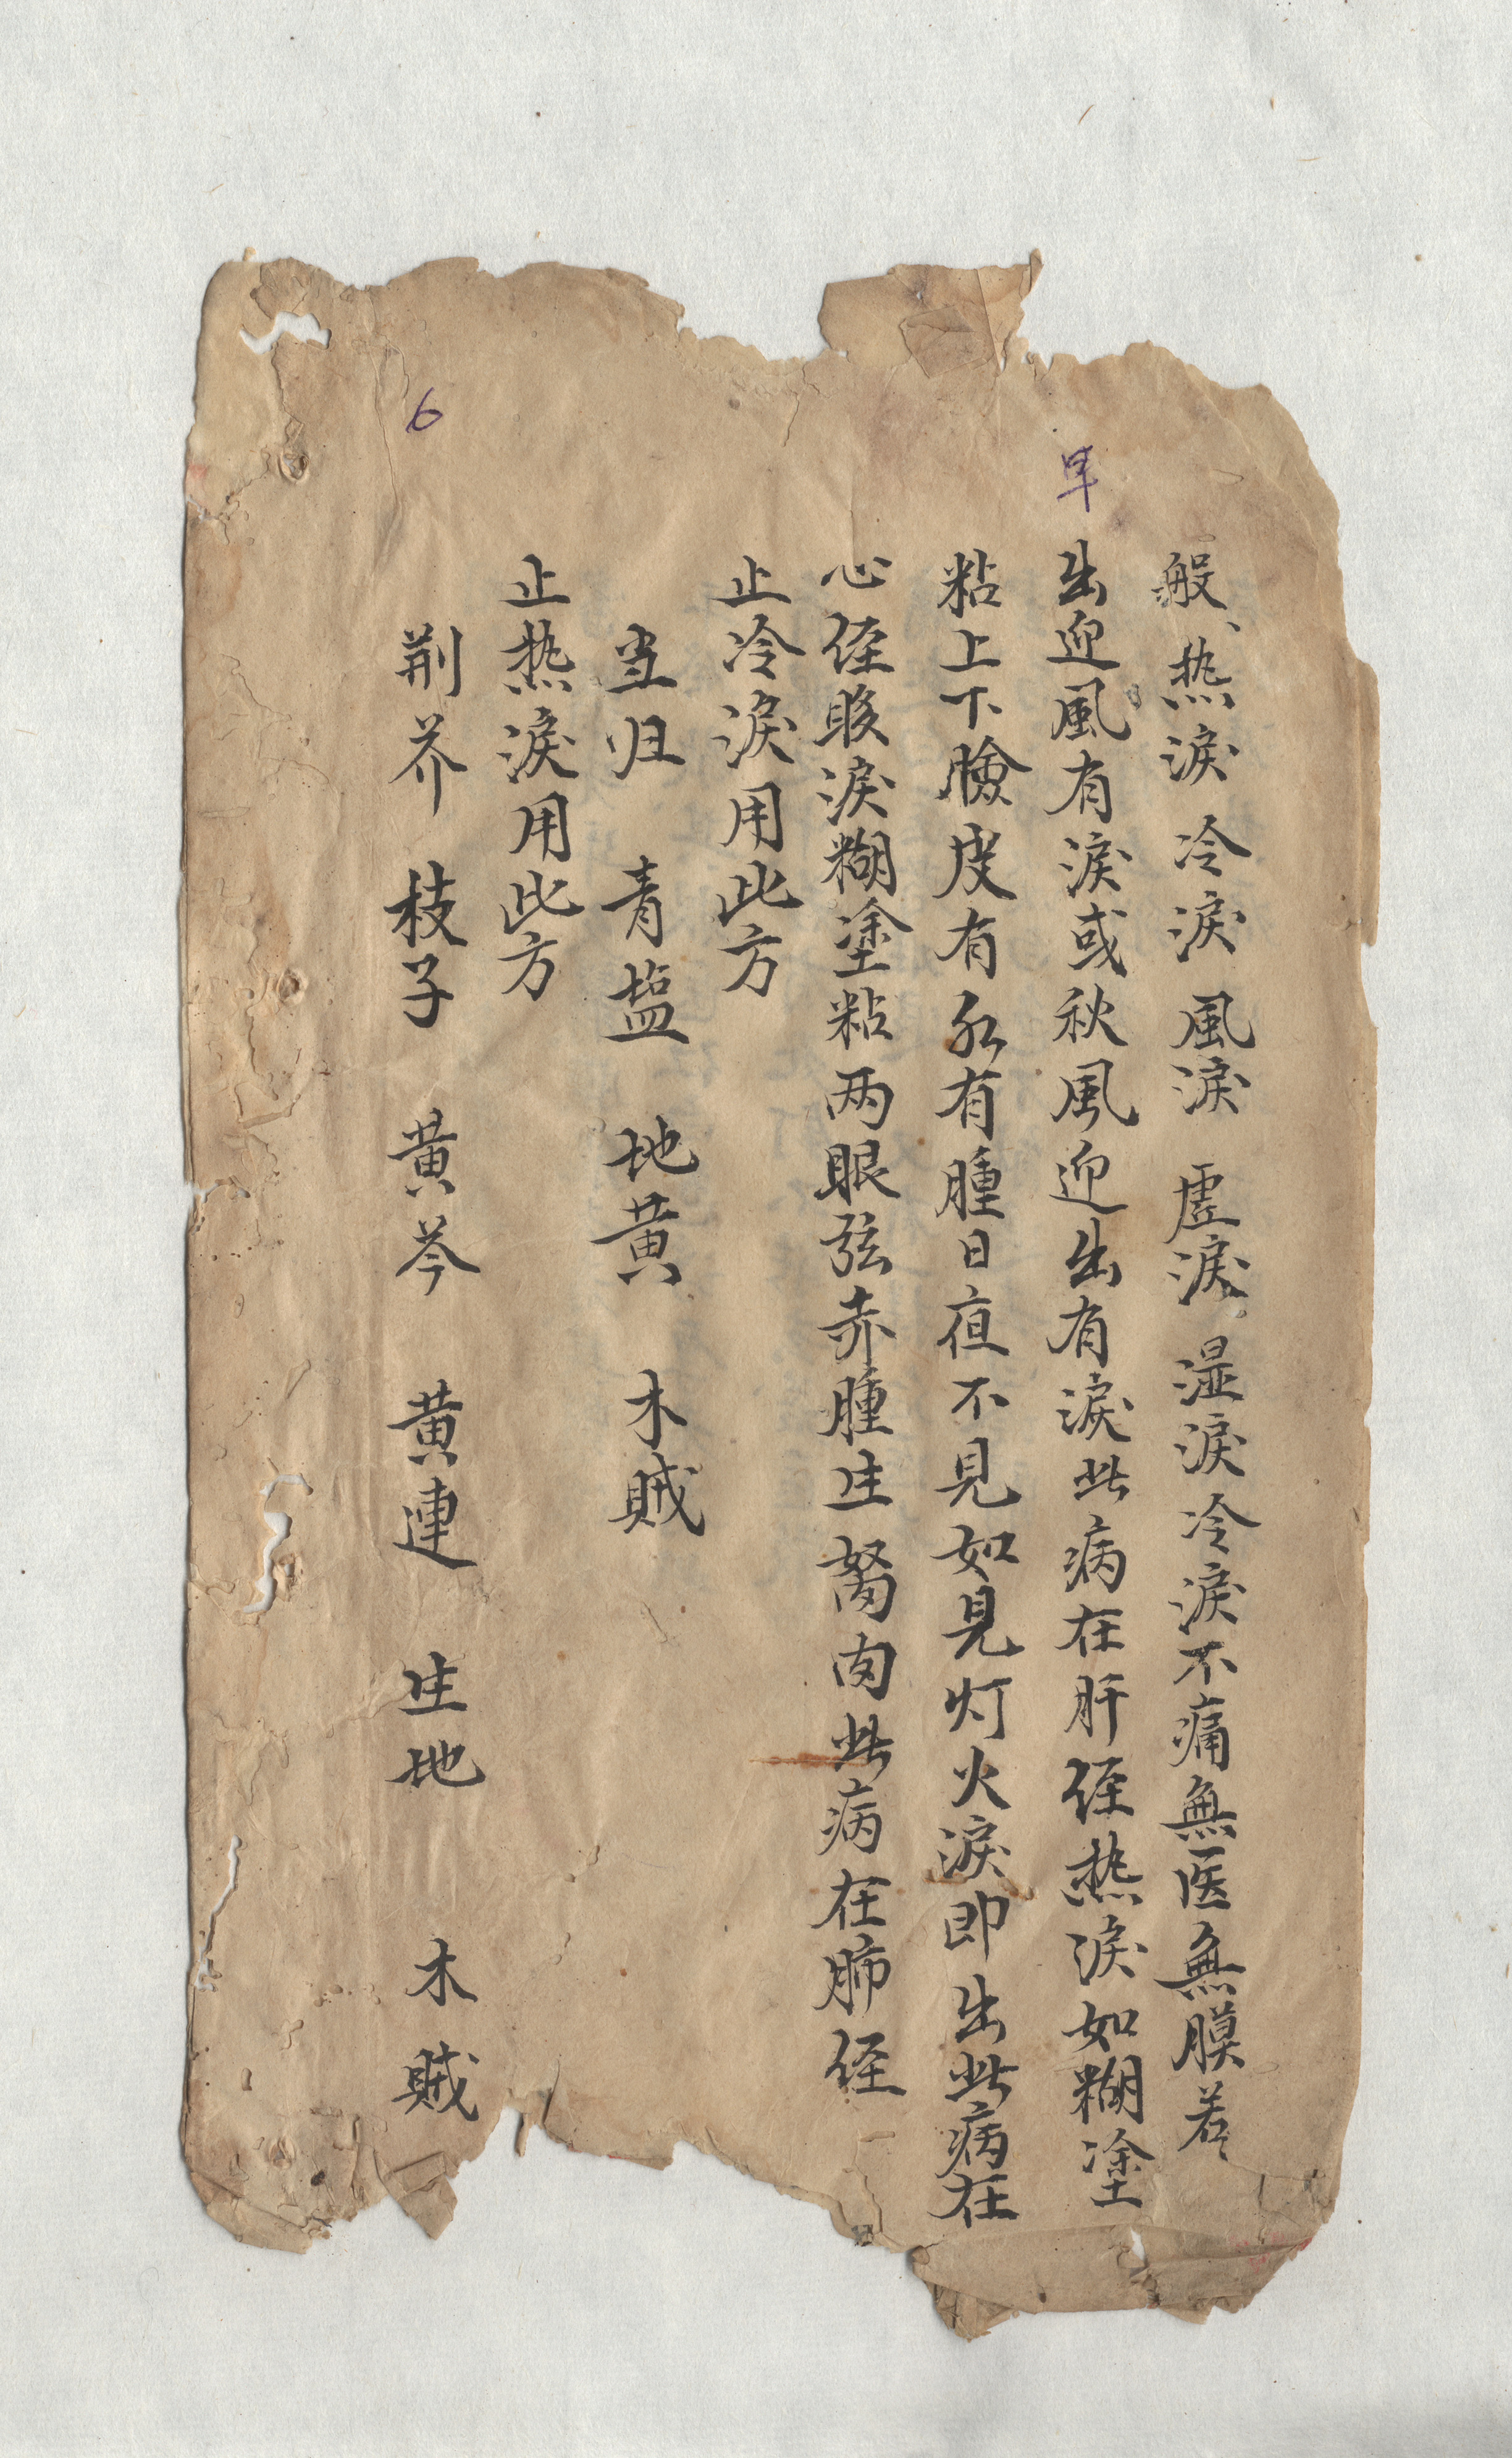 般、热淚 冷淚 風淚 虚淚、湿淚冷淚不痛無医無膜若
出迎風有淚或秋風迎出有淚此病在肝経热淚如糊塗
粘上下臉皮有有腫日夜不見如見灯火淚即出此病在
心経眵淚糊塗粘两眼弦赤腫生胬肉此病在肺経
止冷淚用此方
当归 青塩 地黄 木賊
止热淚用此方
荆芥 枝子 黄芩 黄連 生地 木賊
6